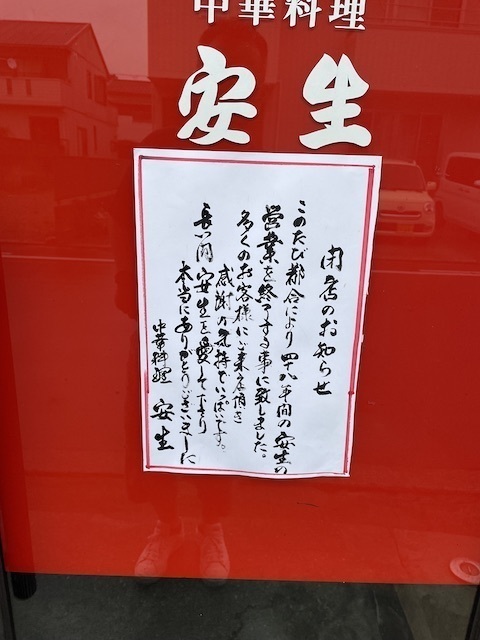 中華料理
安生
閉店のお知らせ
このたび都合により四十八年間の安生の
営業を終了する事に致しました。
多くのお客様にご来店頂き
感謝の気持でいっぱいです。
長い間安生を愛して下さり
本当にありがとうございました
中華料理 安生